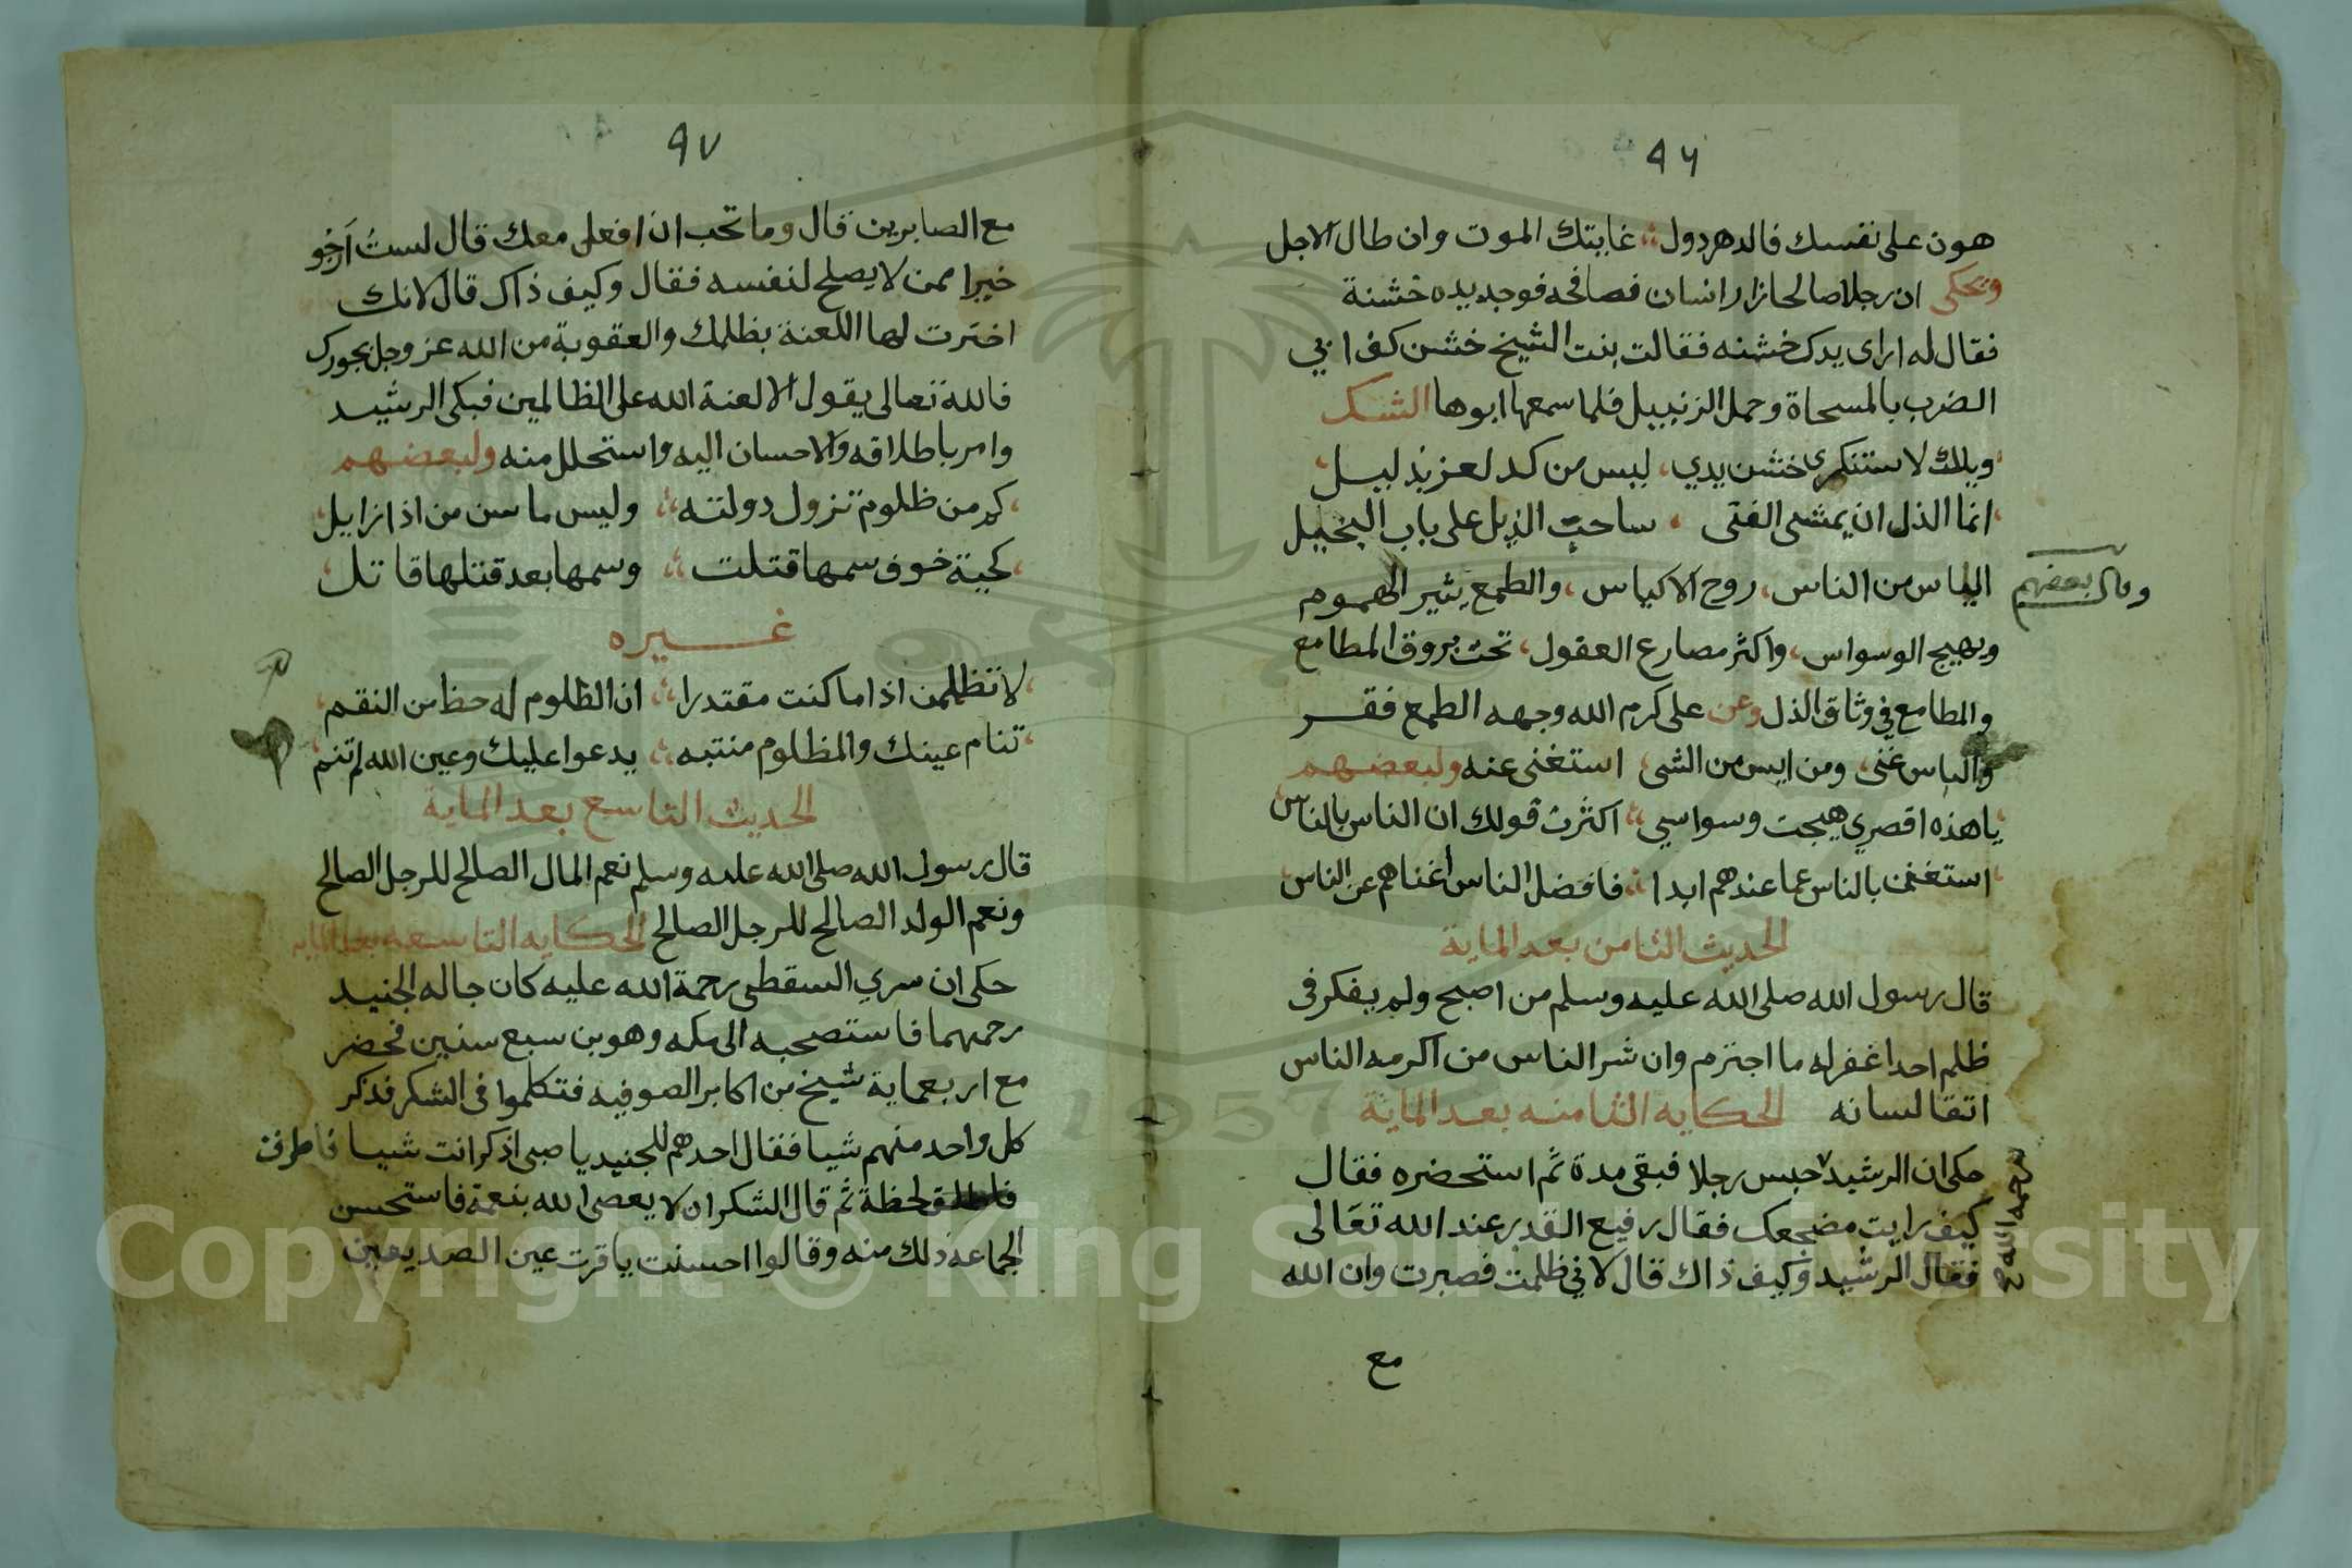 ٩٦
هون على نفسك فالدهر دول غايتك الموت وان طال الاجل
وحكى ان رجلا صالحا زار انسان فصافحه فوجد يده خشنة
فقال له ارى يدك خشنه فقالت بنت الشيخ خشن كف ابي
الضرب بالمسحاة وحمل الزنبيل فلما سمعها ابوها انشد
ويلك لا ستنكري خشن يدي، ليس من كد لعز بذليل
انما الذل ان يمشى الفتى ، ساحب الذيل على باب البخيل
وقال بعضهم
الياس من الناس، روح الاكياس، والطمع يثير الهموم
ويهيج الوسواس، واكثر مصارع العقول، تحت بروق المطامع
والمطامع في وثاق الذل وعن على كرم الله وجهه الطمع فقر
والياس غنى، ومن ايس من الشى استغنى عنه ولبعضهم
يا هذه اقصري هيجت وسواسي اكثرت قولك ان الناس بالناس
استغنن بالناس عما عندهم ابدا فافضل الناس اغناهم عن الناس
الحديث الثامن بعد الماية
قال رسول الله صلى الله عليه وسلم من اصبح ولم يفكر في
ظلم احدا غفر له ما اجترم وان شر الناس من اكرمه الناس
اتقا لسانه الحكايه الثامنه بعد الماية
حكى ان الرشيد حبس رجلا فبقى مدة ثم استحضره فقال
رحمه الله
كيف رايت مضجعك فقال رفيع القدر عند الله تعالى
فقال الرشيد وكيف ذاك قال لاني ظلمت فصبرت وان الله
مع
٩٧
مع الصابرين قال وما تحب ان افعل معك قال لست ارجو
خيرا ممن لا يصلح لنفسه فقال وكيف ذاك قال لانك
اخترت لها اللعنة بظلمك والعقوبة من الله عز وجل بجورك
فالله تعالى يقول الا لعنة الله على الظالمين فبكى الرشيد
وامر باطلاقه والاحسان اليه واستحلل منه ولبعضهم
كم من ظلوم تزول دولته وليس ما سن من اذا زايل
كحية خوف سمها قتلت وسمها بعد قتلها قاتل
غيره
لا تظلمن اذا ما كنت مقتدرا ان الظلوم له حظ من النقم
تنام عينك والمظلوم منتبه يدعوا عليك وعين الله لم تنم
الحديث التاسع بعد الماية
قال رسول الله صلى الله عليه وسلم نعم المال الصالح للرجل الصالح
ونعم الولد الصالح للرجل الصالح الحكايه التاسعه بعد الماية
حكى ان سري السقطى رحمة الله عليه كان خاله الجنيد
رحمهما فاستصحبه الى مكه وهو بن سبع سنين فحضر
مع اربعماية شيخ من اكابر الصوفيه فتكلموا فى الشكر فذكر
كل واحد منهم شيا فقال احدهم للجنيد يا صبى اذكر انت شيا فاطرق
لحظة ثم قال الشكر ان لا يعصى الله بنعمة فاستحسن
الجماعة ذلك منه وقالوا احسنت يا قرت عين الصديقين